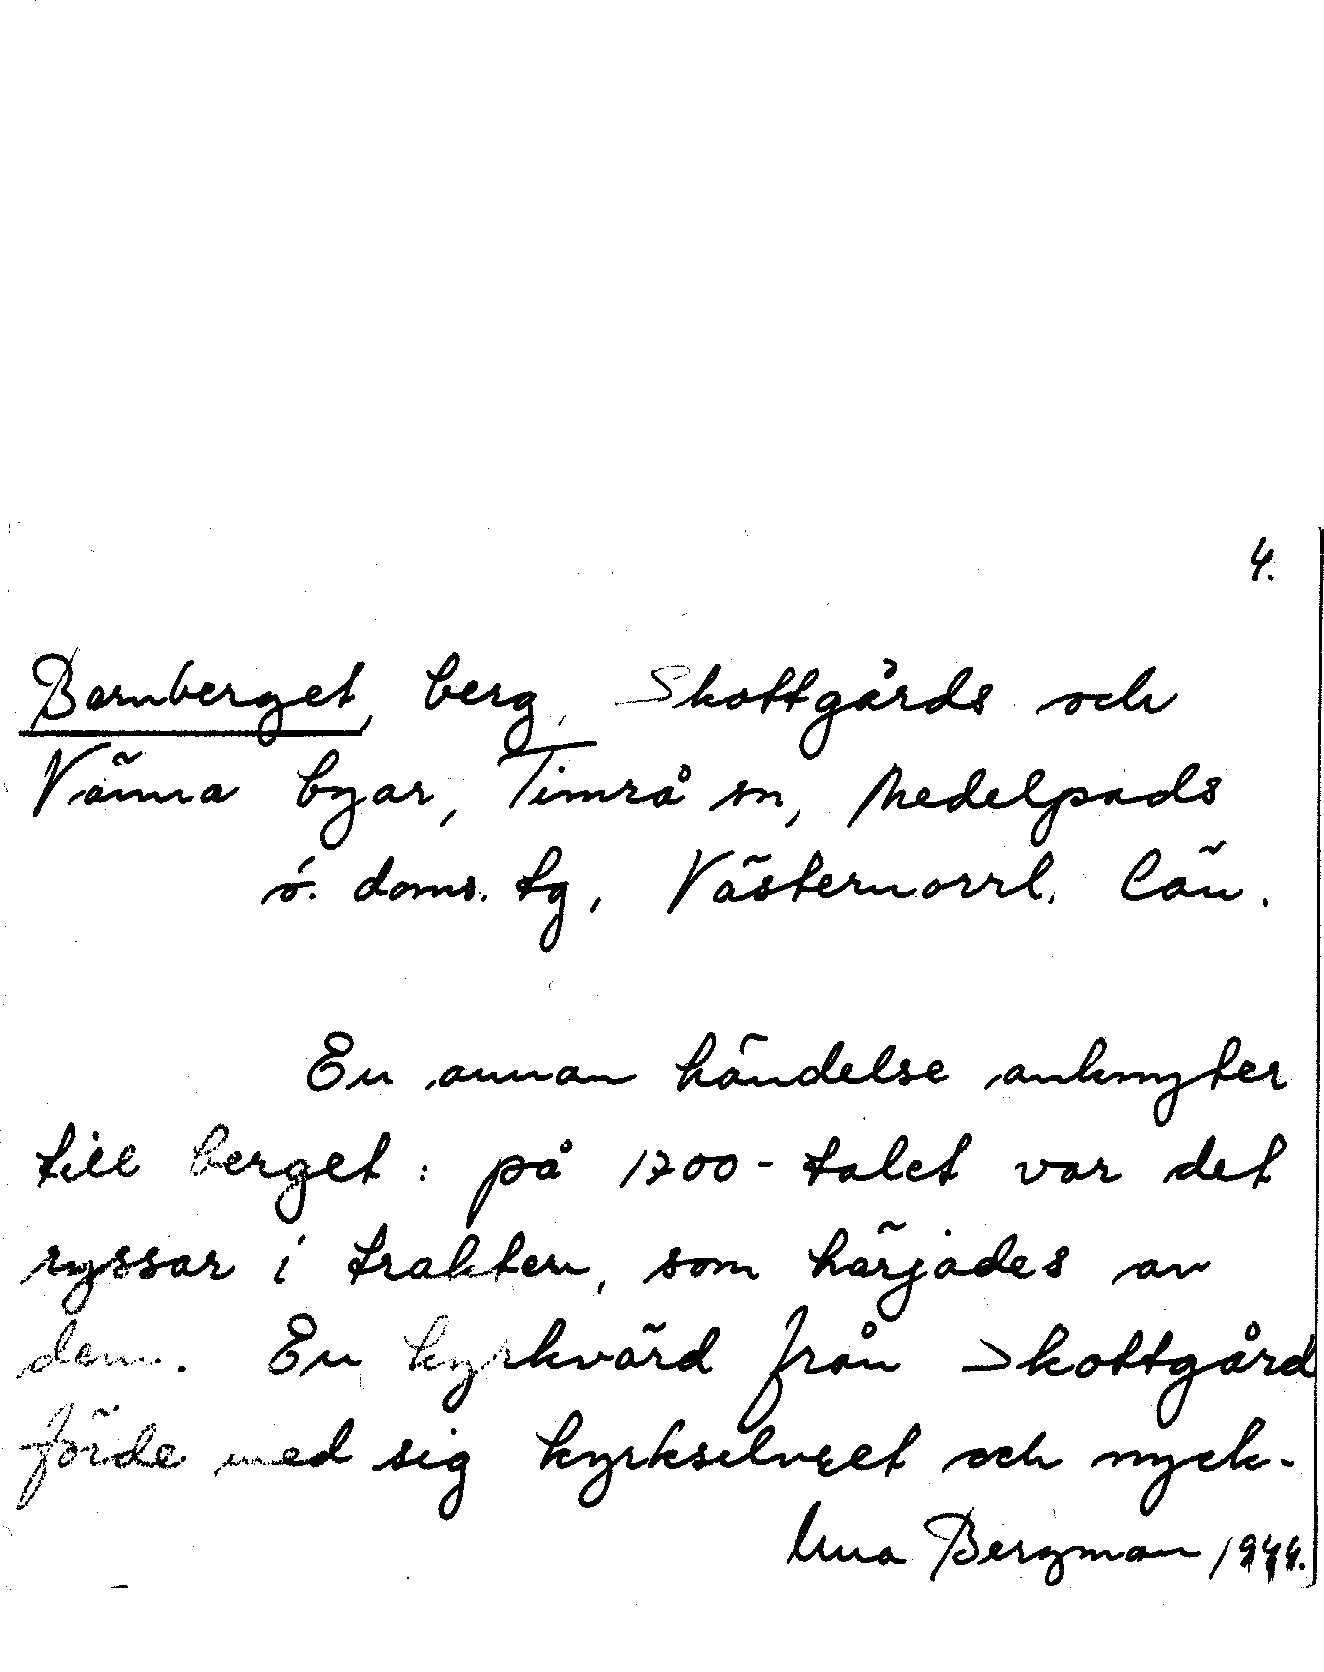 4.
Barnberget, berg, Skottgårds och
Vänna byar, Timrå sn, Medelpads
ö. doms. tg, Västernorrl. län.
En annan händelse anknyter
till berget: på 1700-talet var det
ryssar i trakten, som härjades av
dem. En kyrkvärd från Skottgård
förde med sig kyrksilvret och nyck-
Bergman 1944.